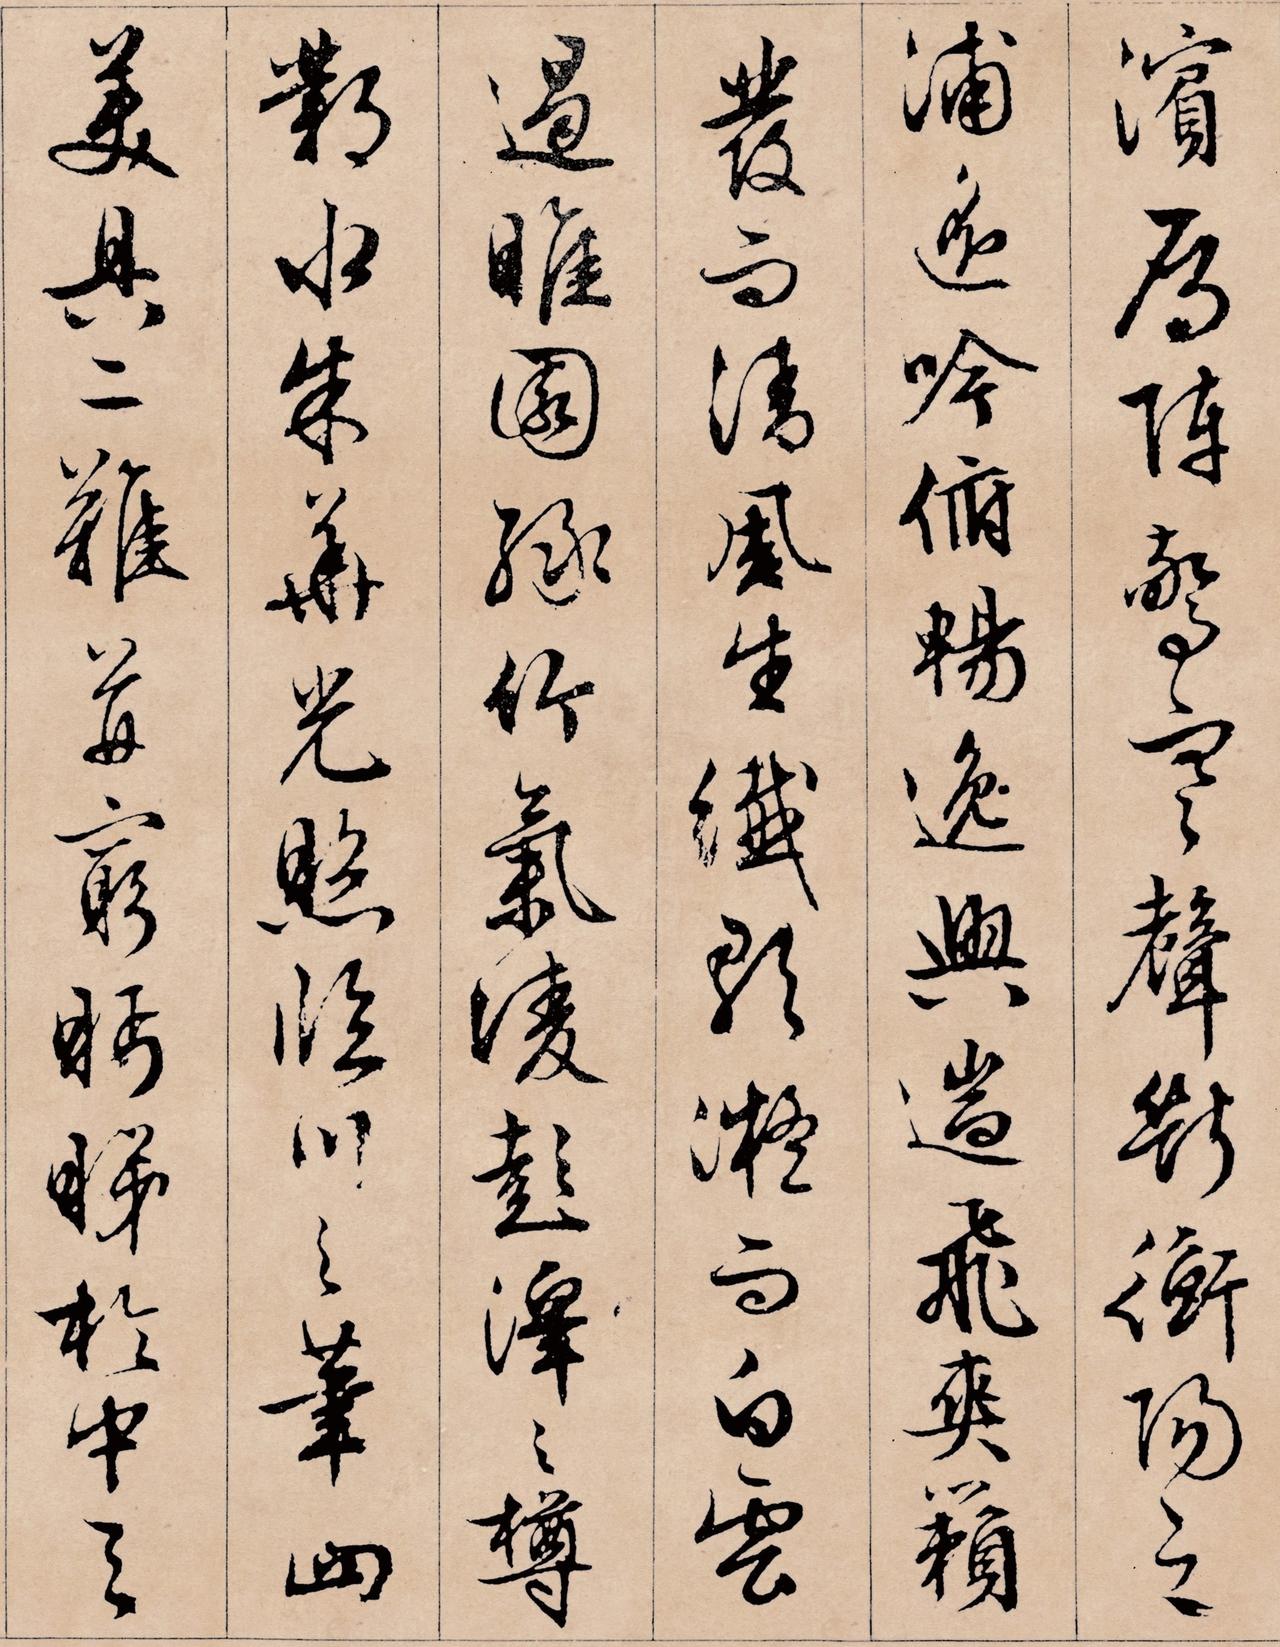 濱鴈陣驚寒聲斷衡陽之
浦遥吟俯暢逸興遄飛爽籟
發而清風生纖歌凝而白雲
遏睢園綠竹氣淩彭澤之樽
鄴水朱華光照臨川之筆四
美具二難并窮眄睇於中天